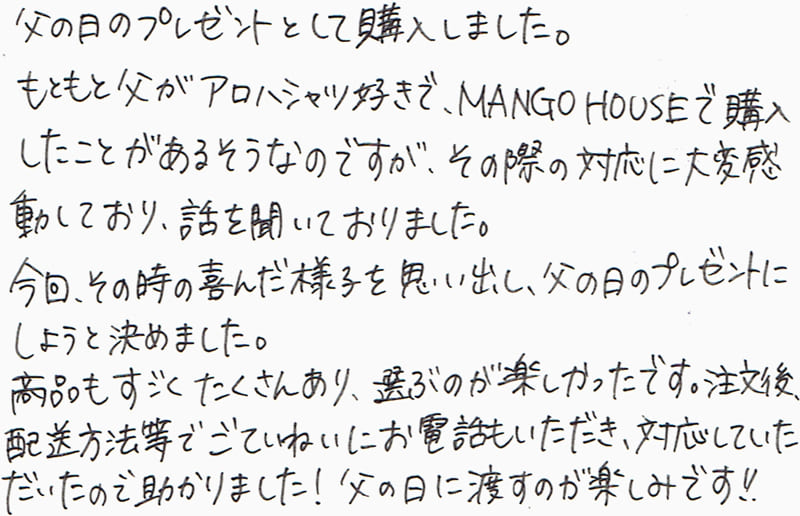 父の日のプレゼントとして購入しました。
もともと父がアロハシャツ好きで、MANGO HOUSEで購入
したことがあるそうなのですが、その際の対応に大変感
動しており、話を聞いておりました。
今回、その時の喜んだ様子を思い出し、父の日のプレゼントに
しようと決めました。
商品もすごくたくさんあり、選ぶのが楽しかったです。注文後、
配送方法等でごていねいにお電話もいただき、対応していた
だいたので助かりました!父の日に渡すのが楽しみです!!